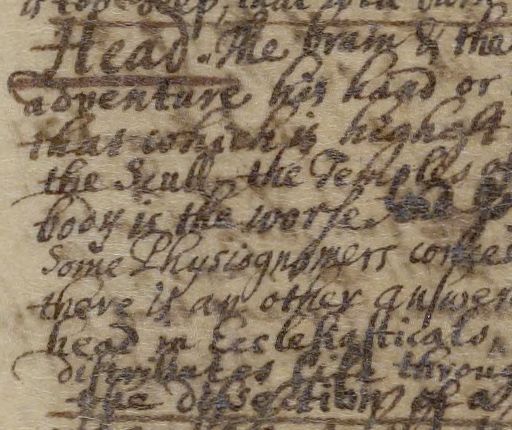 Head. The brain & the
adventure his head or
that which is highest
the Scull the Temples of
body is the worse
Some Physiognomers
there is an other answer
head in Ecclesiasticals,
distributes life throug
the dissection of a